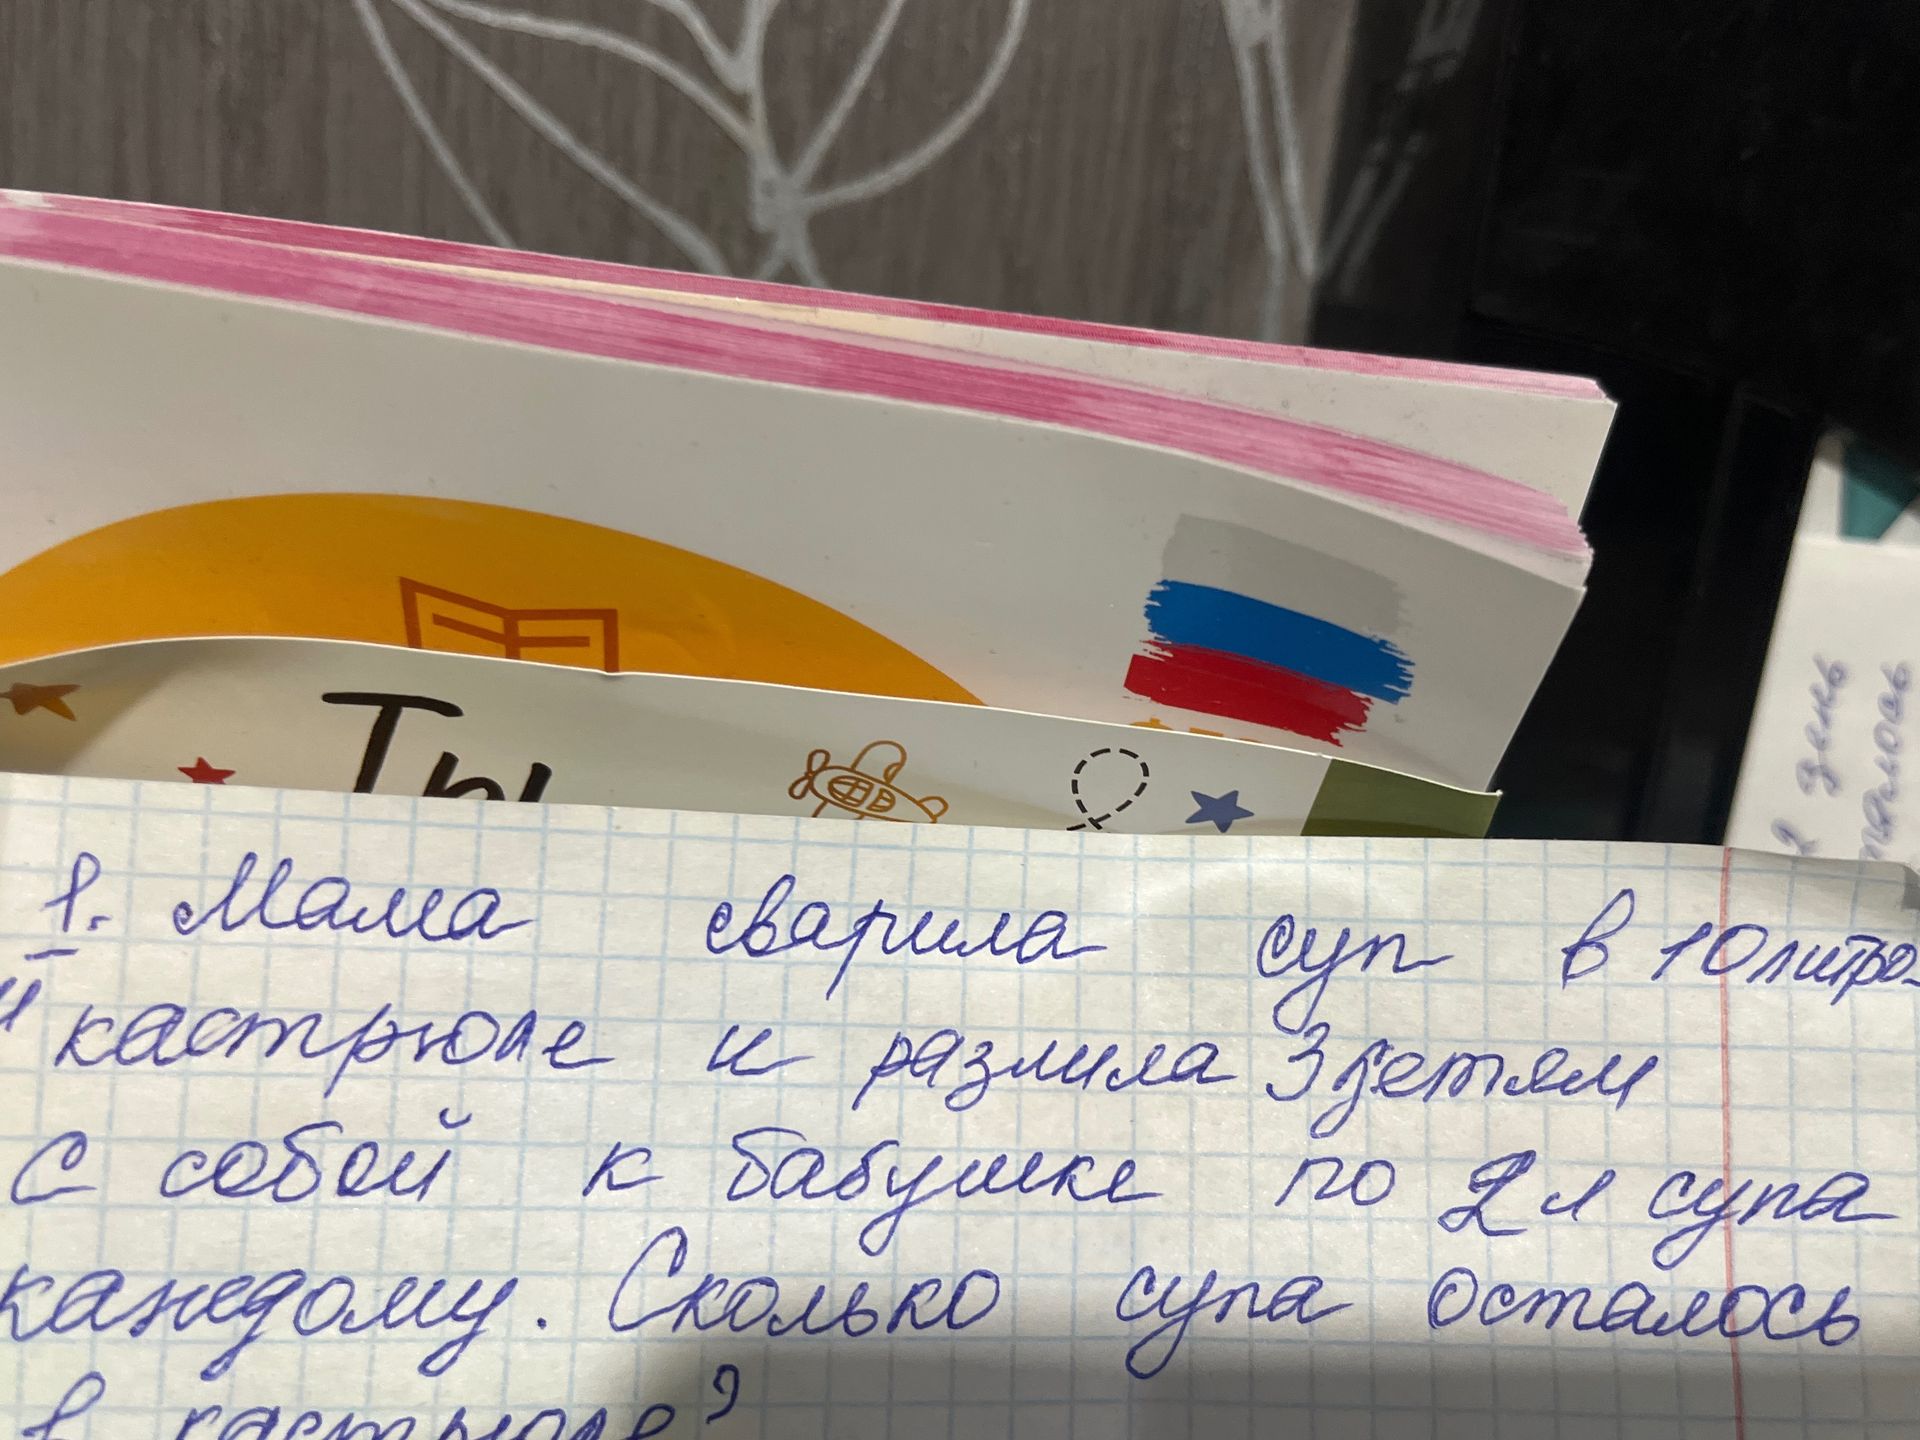 Ты
1. Мама сварила суп в 10 литро-
й кастрюле и разлила 3 детям
с собой к бабушке по 2 л супа
каждому. Сколько супа осталось
в кастрюле?
2 день
талось